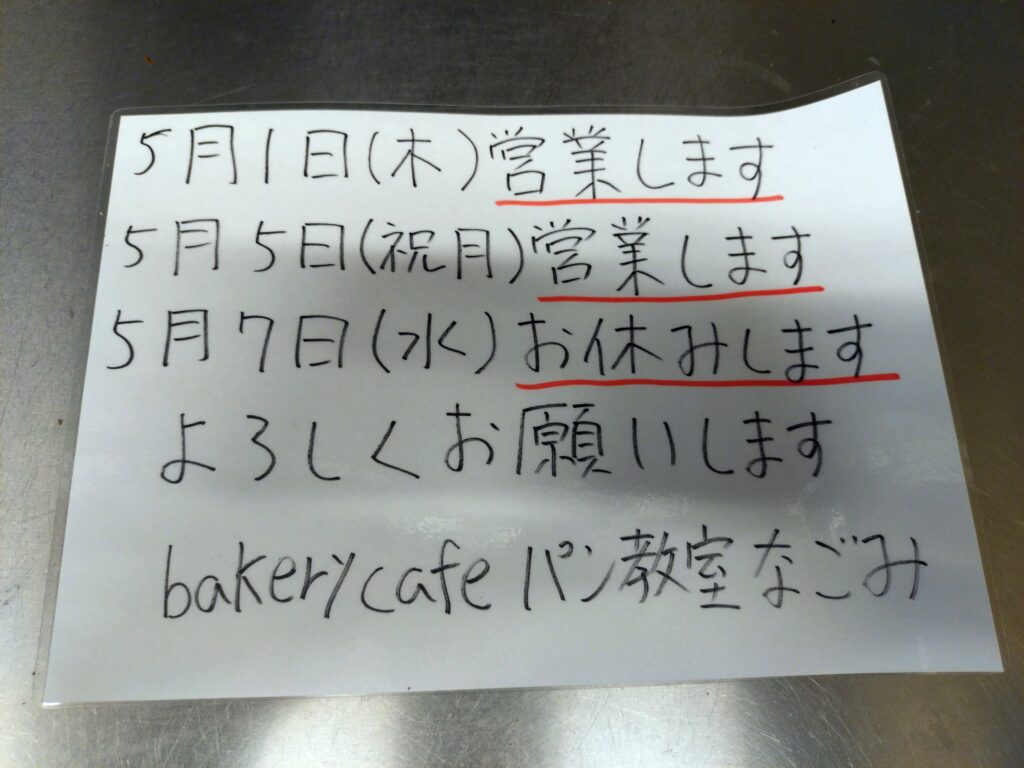 5月1日(木)営業します
5月5日(祝月)営業します
5月7日(水)お休みします
よろしくお願いします
bakery cafe パン教室なごみ